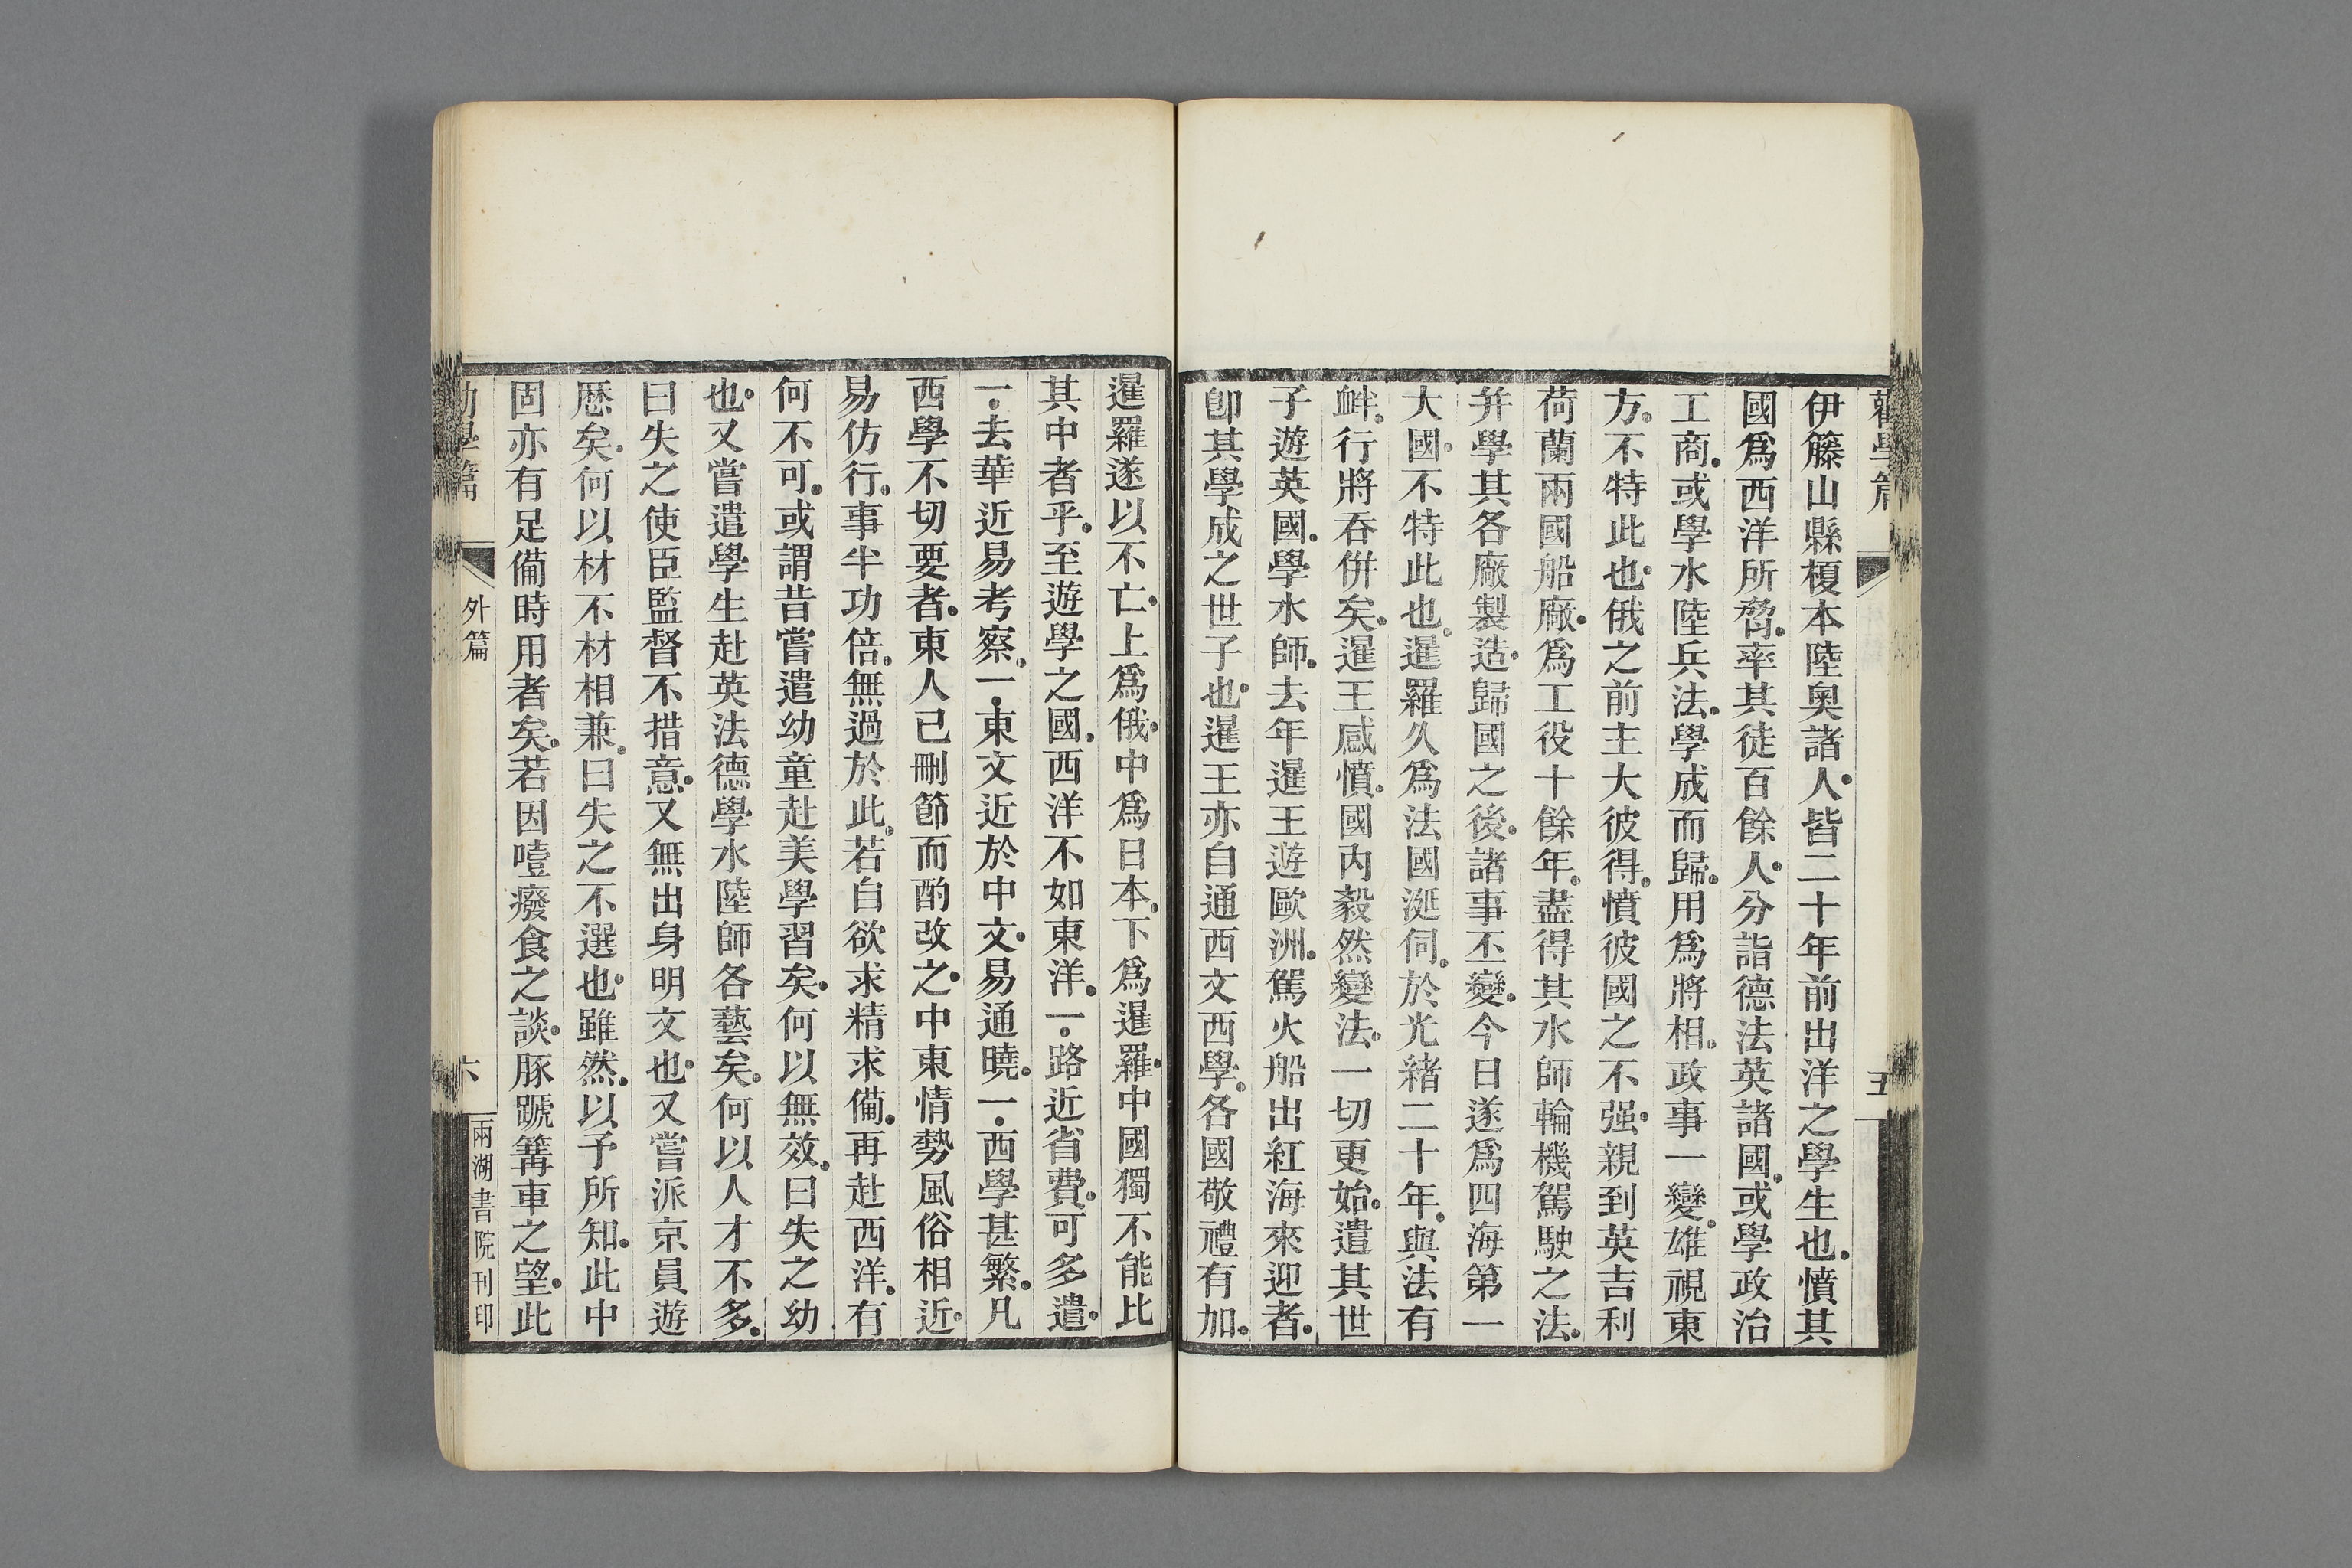 勸學篇
五
伊籐山縣榎本陸奧諸人皆二十年前出洋之學生也憤其
國爲西洋所脅率其徒百餘人分詣德法英諸國或學政治
工商或學水陸兵法學成而歸用爲將相政事一變雄視東
方不特此也俄之前主大彼得憤彼國之不强親到英吉利
荷蘭兩國船廠爲工役十餘年盡得其水師輪機駕駛之法
幷學其各廠製造歸國之後諸事丕變今日遂爲四海第一
大國不特此也暹羅久爲法國涎伺於光緒二十年與法有
衅行將吞併矣暹王感憤國內毅然變法一切更始遣其世
子遊英國學水師去年暹王遊歐洲駕火船出紅海來迎者
卽其學成之世子也暹王亦自通西文西學各國敬禮有加
暹羅遂以不亡上爲俄中爲日本下爲暹羅中國獨不能比
其中者乎至遊學之國西洋不如東洋一路近省費可多遣
一去華近易考察一東文近於中文易通曉一西學甚繁凡
西學不切要者東人已刪節而酌改之中東情勢風俗相近
易仿行事半功倍無過於此若自欲求精求備再赴西洋有
何不可或謂昔嘗遣幼童赴美學習矣何以無效曰失之幼
也又嘗遣學生赴英法德學水陸師各藝矣何以人才不多
曰失之使臣監督不措意又無出身明文也又嘗派京員遊
厯矣何以材不材相兼曰失之不選也雖然以予所知此中
固亦有足備時用者矣若因噎癈食之談豚蹏篝車之望此
勸學篇
外篇
六
兩湖書院刊印